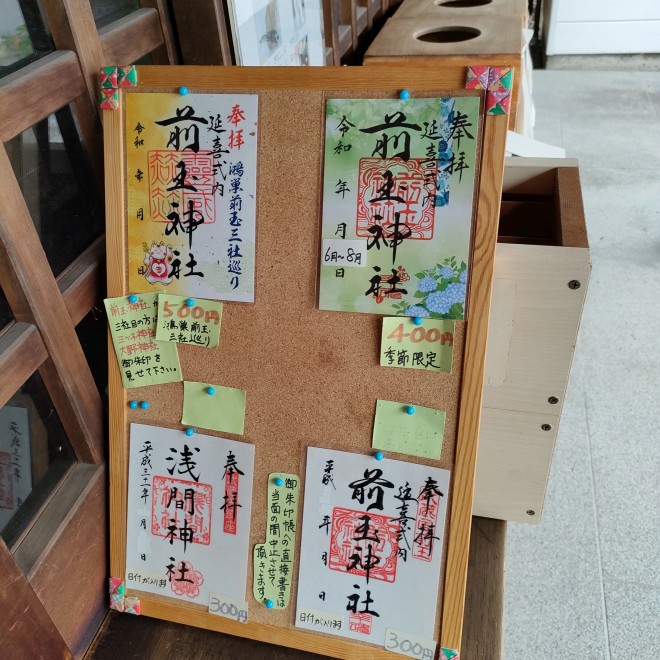 奉拝
鴻巣前玉三社巡り
延喜式内
前玉神社
令和 年 月 日
奉拝
延喜式内
前玉神社
令和 年 月 日
6月～8月
500円
鴻巣、前玉、
三社巡り
三社目の方は
御朱印を
見せて下さい。
400円
季節限定
奉拝
浅間神社
平成三十一年 月 日
日付が入り〼
300円
御朱印帳への直接書きは
当面の間中止させて
頂きます。
奉拝
延喜式内
前玉神社
平成 年 月 日
日付が入り〼
300円